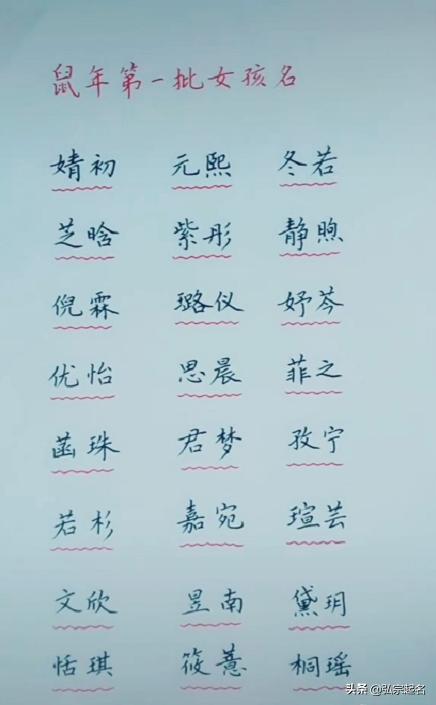 鼠年第一批女孩名
婧初 元熙 冬若
芝晗 紫彤 静煦
倪霖 璐仪 妤芩
优怡 思晨 菲之
菡珠 君梦 孜宁
若杉 嘉宛 瑄芸
文欣 昱南 黛玥
恬琪 筱薏 桐瑶
头条 @弘宗起名